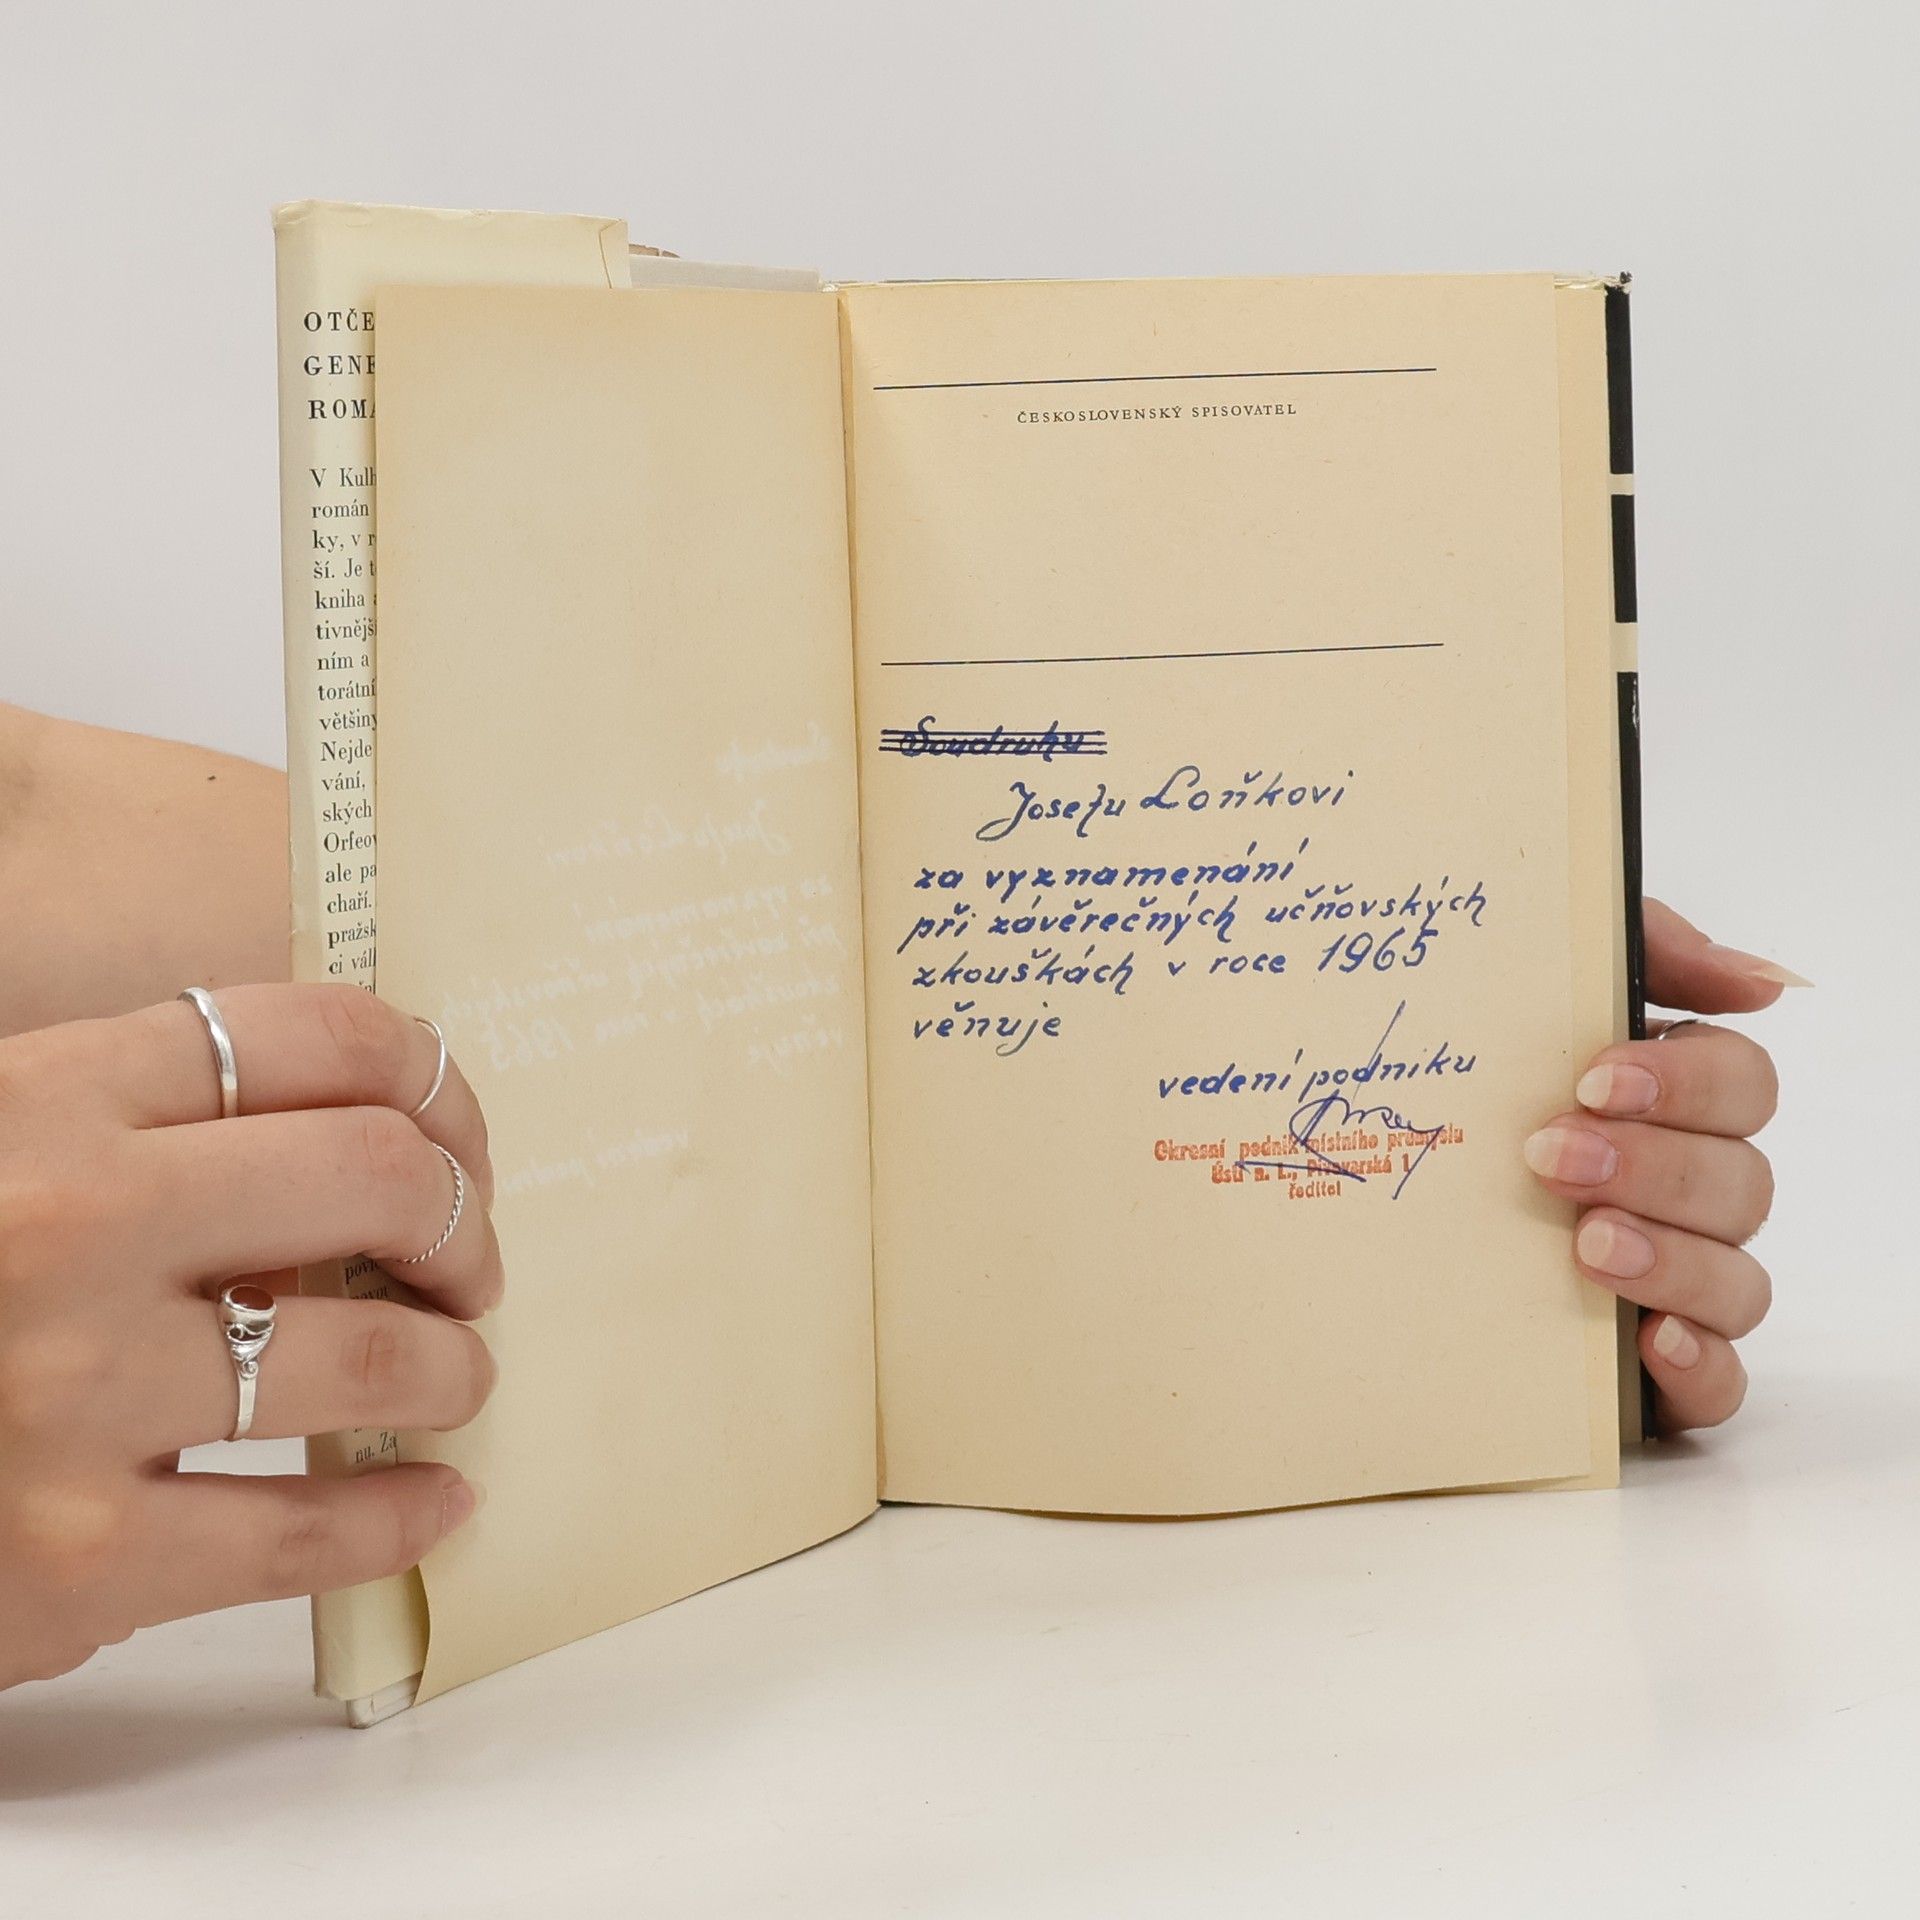 OTČE
GENE
ROMA
V Kulh
román
ky, v r
ší. Je t
kniha a
tivnějš
ním a
torátní
většiny
Nejde
vání,
ských
Orfeov
ale pa
chaří.
pražsk
ci vál
poví
novou
nu. Za
ČESKOSLOVENSKÝ SPISOVATEL
Soudruhu
Josefu Loňkovi
za vyznamenání
při závěrečných učňovských
zkouškách v roce 1965
věnuje
vedení podniku
Okresní podnik místního průmyslu
Ústí n. L., Pivovarská 1
ředitel